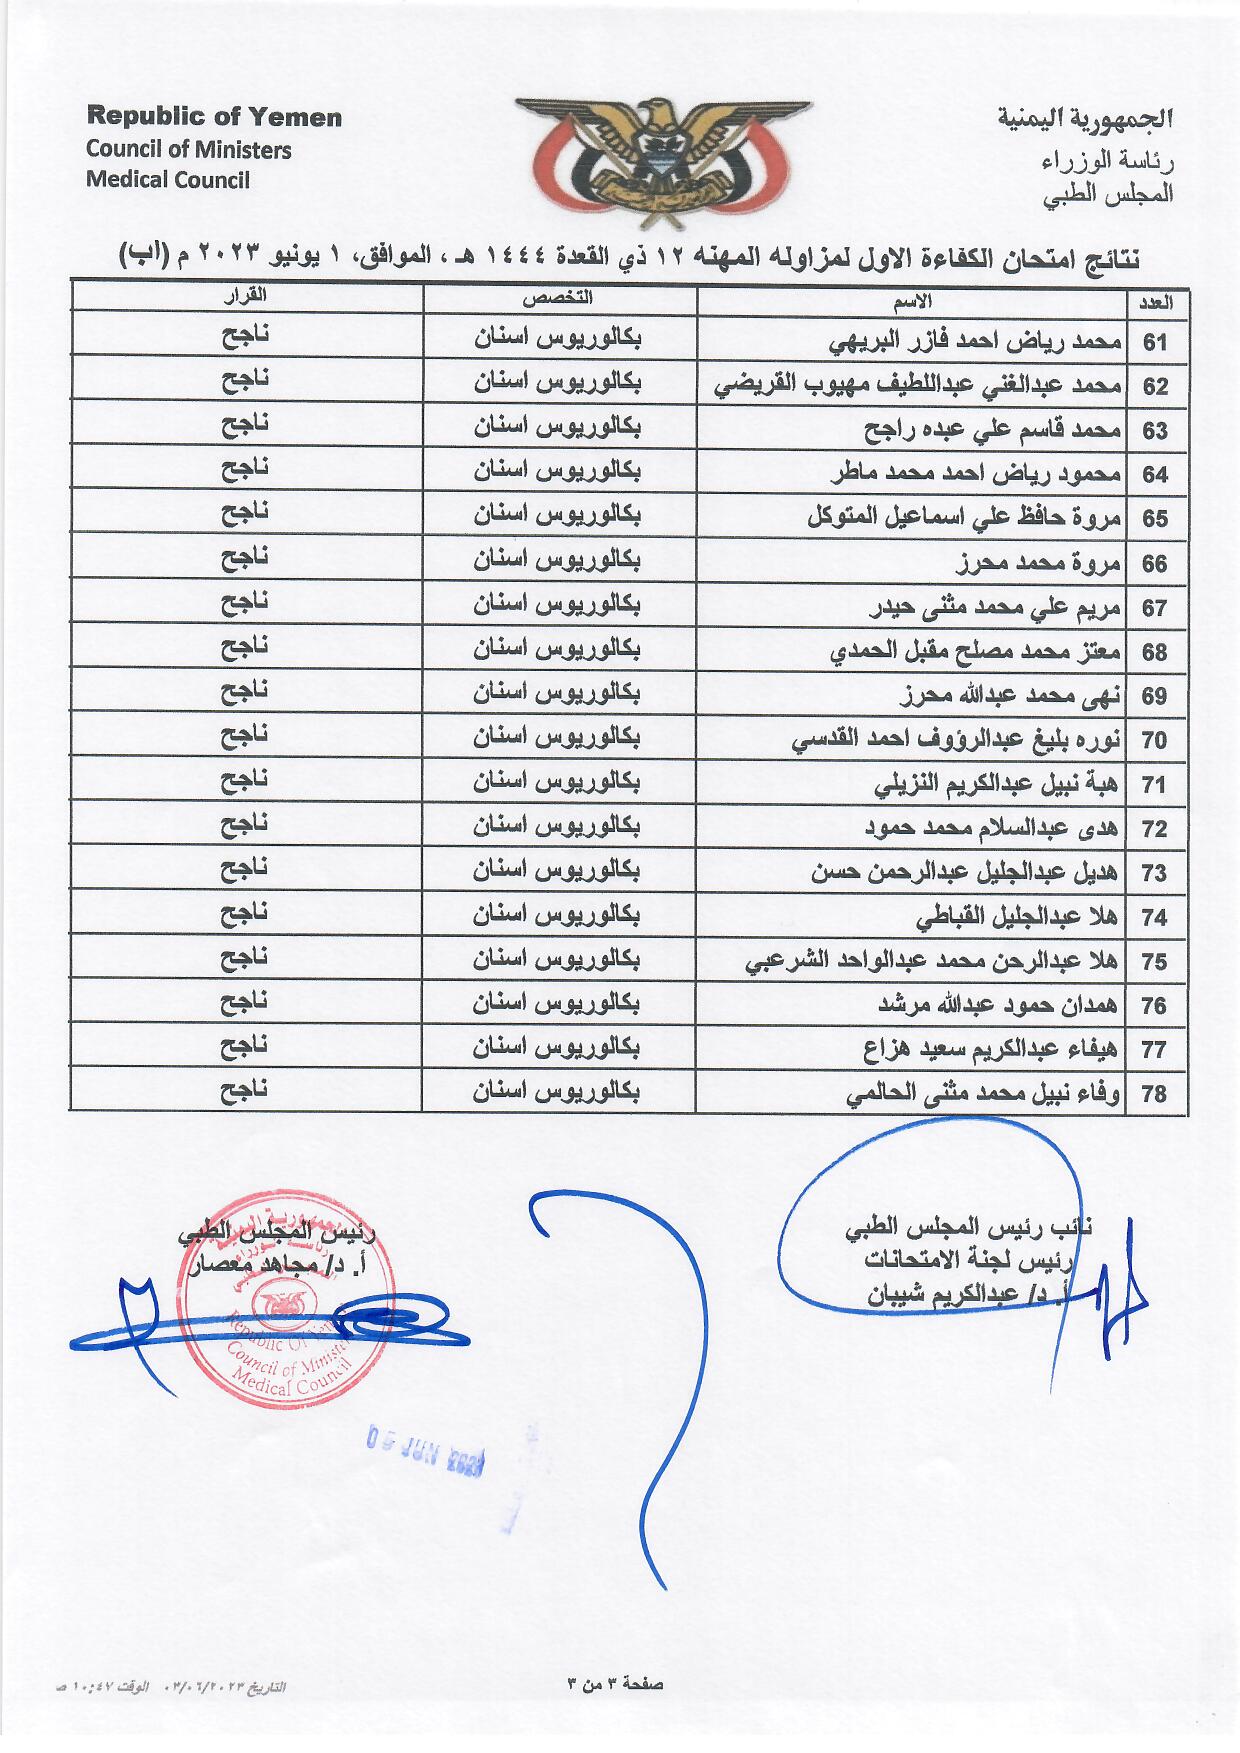 Republic of Yemen
Council of Ministers
Medical Council
الجمهورية اليمنية
رئاسة الوزراء
المجلس الطبي
نتائج امتحان الكفاءة الاول لمزاوله المهنه ١٢ ذي القعدة ١٤٤٤ هـ ، الموافق، ١ يونيو ٢٠٢٣ م (اب)
العدد الاسم التخصص القرار
61 محمد رياض احمد فازر البريهي بكالوريوس اسنان ناجح
62 محمد عبدالغني عبداللطيف مهيوب القريضي بكالوريوس اسنان ناجح
63 محمد قاسم علي عبده راجح بكالوريوس اسنان ناجح
64 محمود رياض احمد محمد ماطر بكالوريوس اسنان ناجح
65 مروة حافظ علي اسماعيل المتوكل بكالوريوس اسنان ناجح
66 مروة محمد محرز بكالوريوس اسنان ناجح
67 مريم علي محمد مثنى حيدر بكالوريوس اسنان ناجح
68 معتز محمد مصلح مقبل الحمدي بكالوريوس اسنان ناجح
69 نهى محمد عبدالله محرز بكالوريوس اسنان ناجح
70 نوره بليغ عبدالرؤوف احمد القدسي بكالوريوس اسنان ناجح
71 هبة نبيل عبدالكريم النزيلي بكالوريوس اسنان ناجح
72 هدى عبدالسلام محمد حمود بكالوريوس اسنان ناجح
73 هديل عبدالجليل عبدالرحمن حسن بكالوريوس اسنان ناجح
74 هلا عبدالجليل القباطي بكالوريوس اسنان ناجح
75 هلا عبدالرحن محمد عبدالواحد الشرعبي بكالوريوس اسنان ناجح
76 همدان حمود عبدالله مرشد بكالوريوس اسنان ناجح
77 هيفاء عبدالكريم سعيد هزاع بكالوريوس اسنان ناجح
78 وفاء نبيل محمد مثنى الحالمي بكالوريوس اسنان ناجح
نائب رئيس المجلس الطبي
رئيس لجنة الامتحانات
أ. د/ عبدالكريم شيبان
رئيس المجلس الطبي
أ. د/ مجاهد معصار
Republic Of Yemen
Council of Ministers
Medical Council
صفحة ٣ من ٣
التاريخ ٠٣/٠٦/٢٠٢٣ الوقت ١٠:٤٧ ص